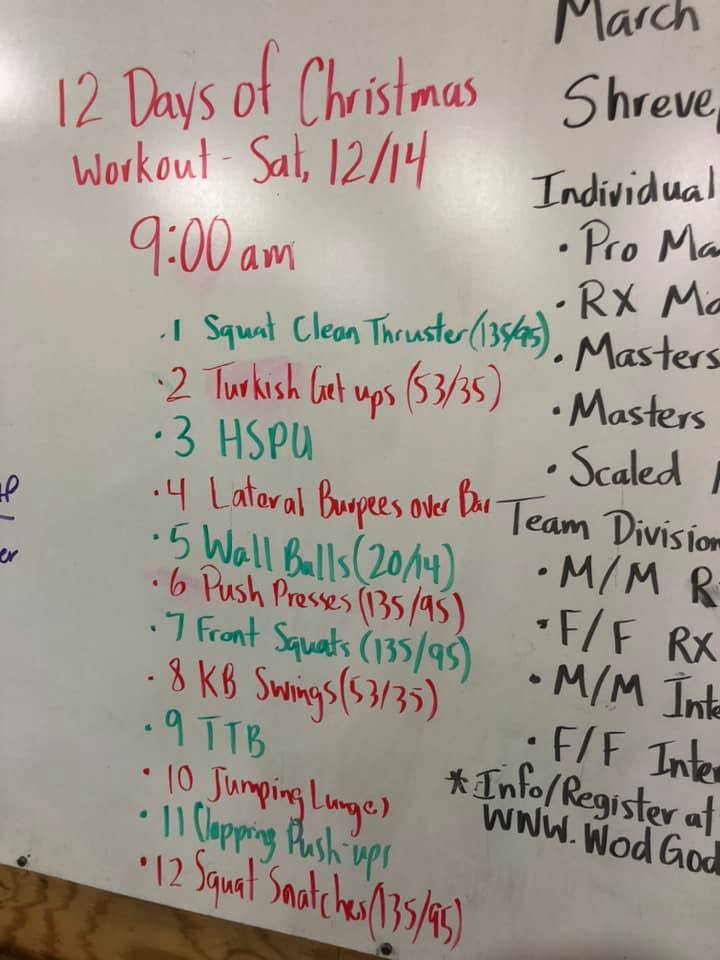 12 Days of Christmas
Workout - Sat, 12/14
9:00 am
.1 Squat Clean Thruster (135/95)
·2 Turkish Get ups (53/35)
·3 HSPU
·4 Lateral Burpees over Bar
·5 Wall Balls (20/14)
·6 Push Presses (135/95)
·7 Front Squats (135/95)
·8 KB Swings (53/35)
·9 TTB
·10 Jumping Lunges
·11 Clapping Push-ups
·12 Squat Snatches (135/95)
March
Shreve
Individual
· Pro Ma
· RX Ma
· Masters
· Masters
· Scaled
Team Division
· M/M R
· F/F RX
· M/M Inte
· F/F Inter
* Info/Register at
WWW.WodGod
er